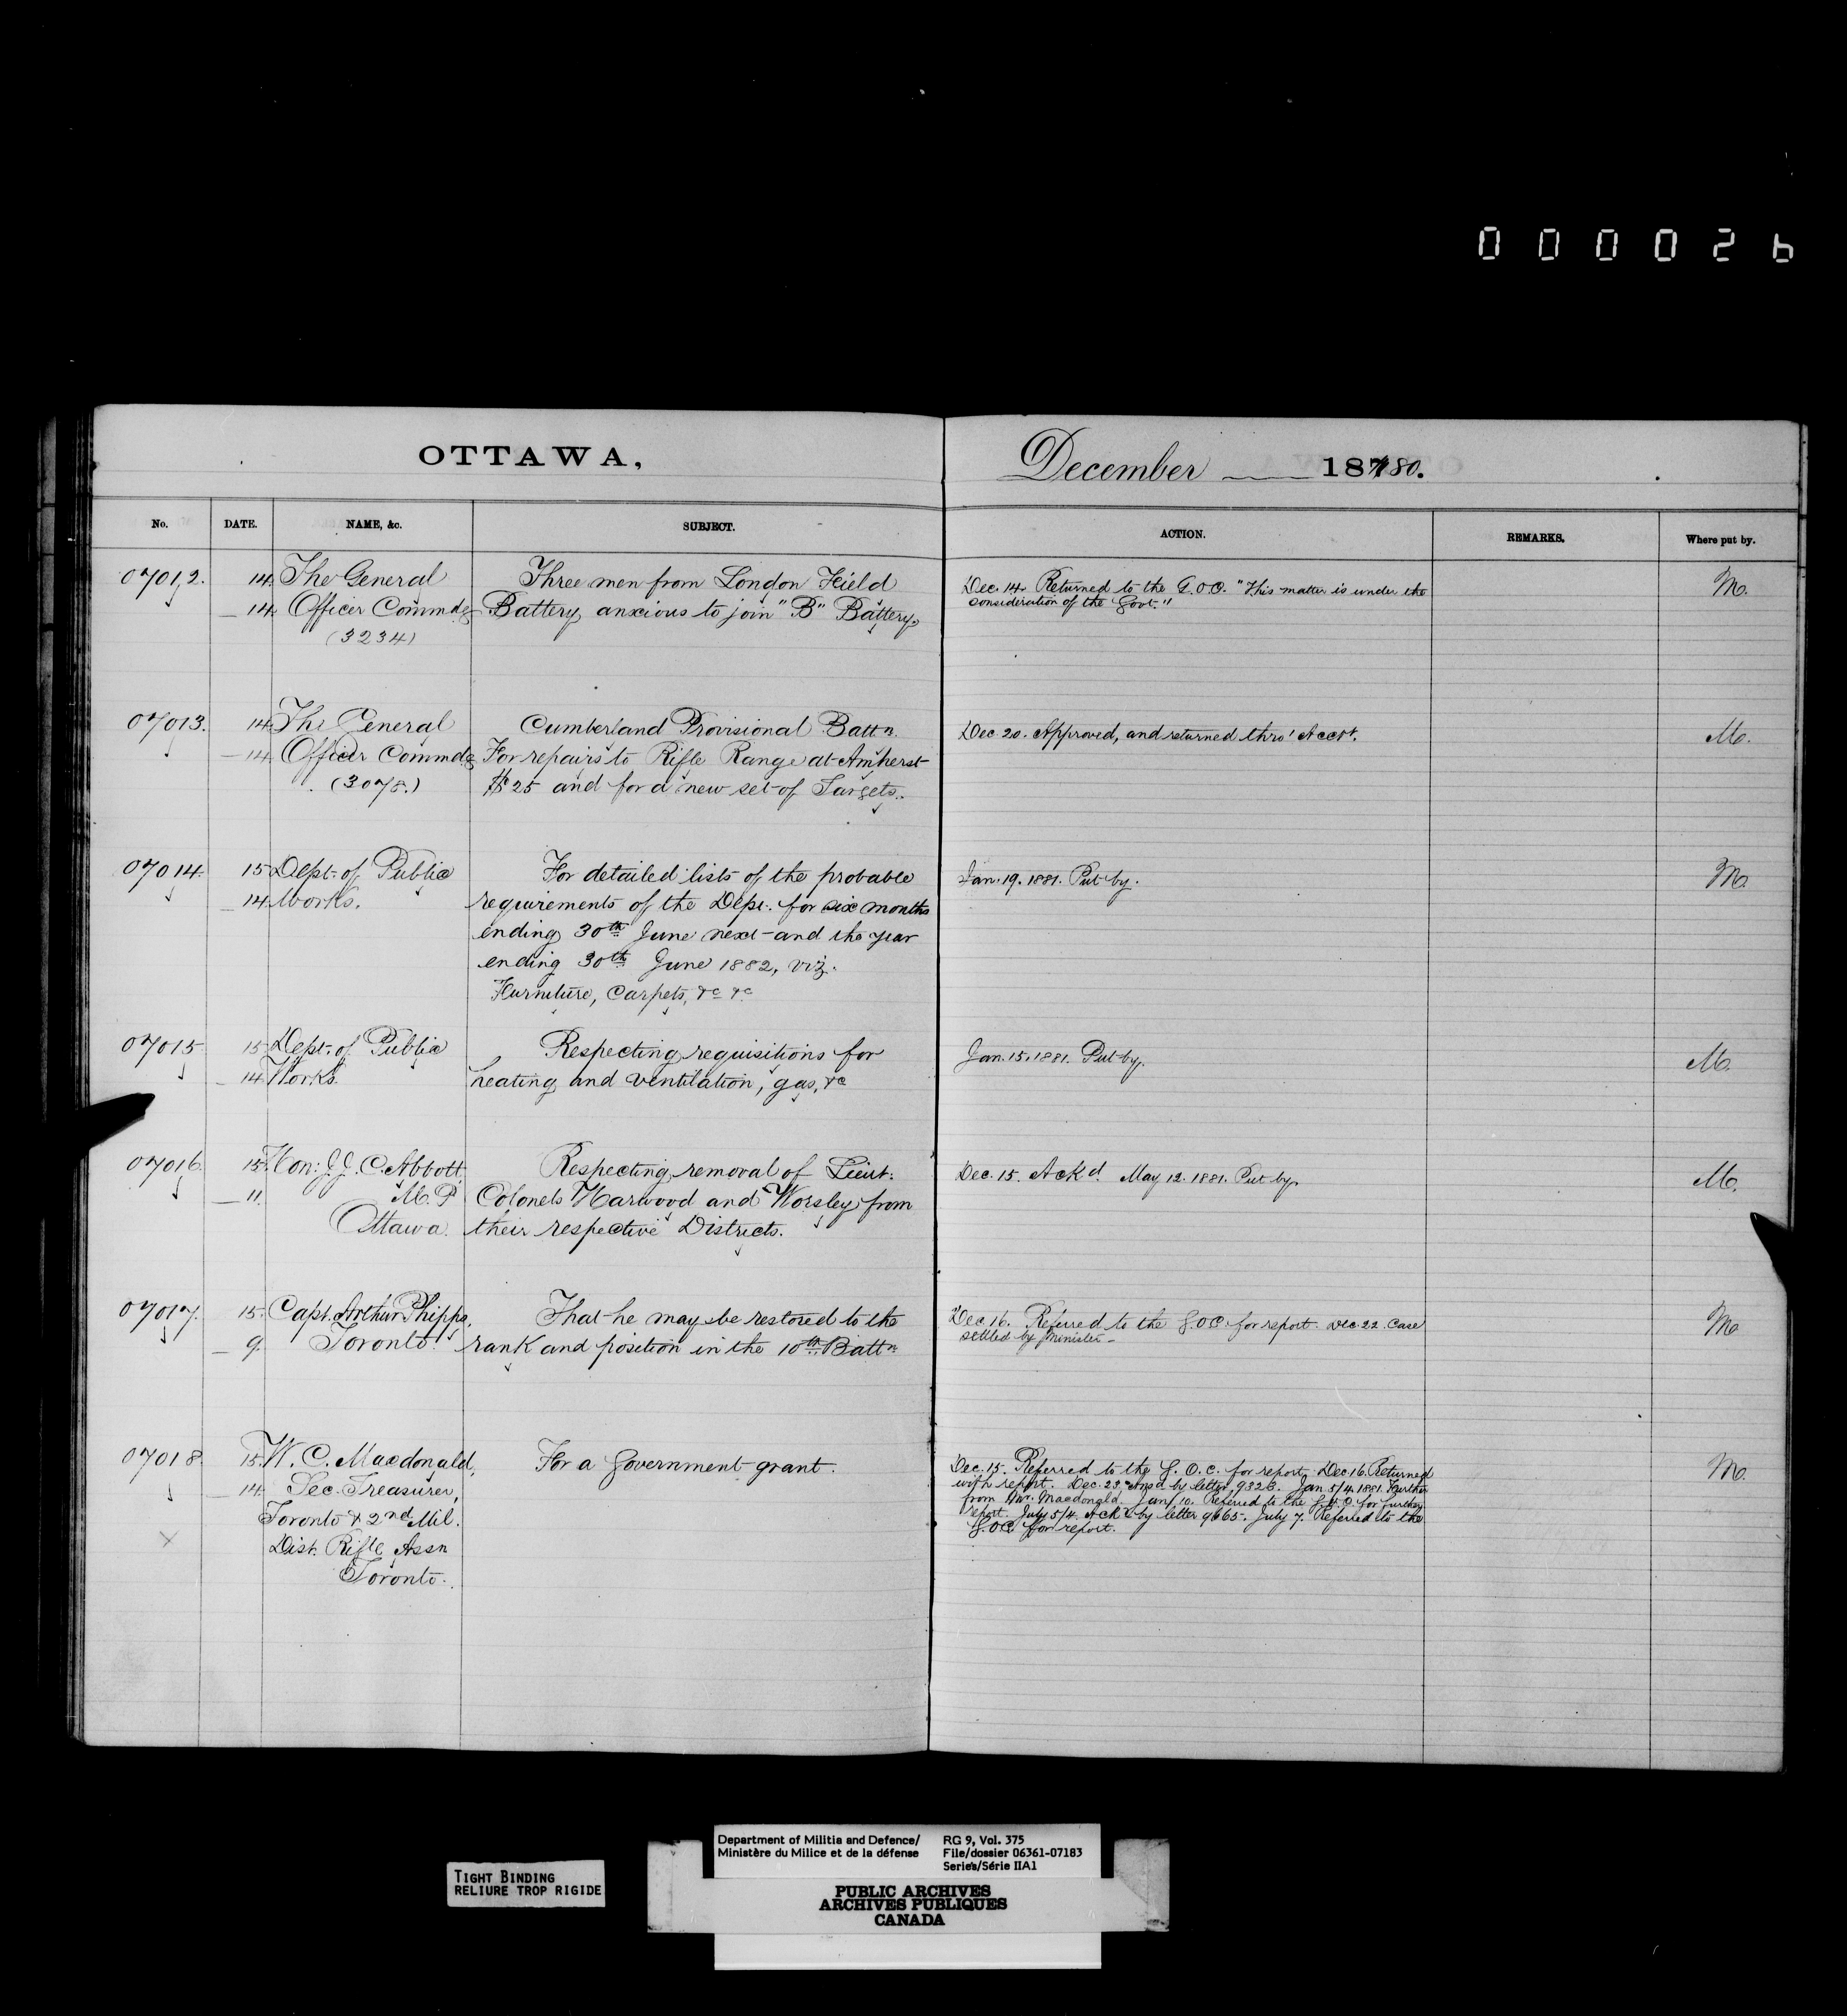 000026
OTTAWA,
December 1880.
No. DATE. NAME, &c. SUBJECT. ACTION. REMARKS. Where put by.
07012. 14. The General Three men from London Field
— 14. Officer Commdg Battery, anxious to join "B" Battery.
(3234)
Dec. 14. Returned to the G.O.C. "This matter is under the
consideration of the Govt."
M.
07013. 14. The General Cumberland Provisional Battn.
— 14. Officer Commdg For repairs to Rifle Range at Amherst
(3078.) $25 and for a new set of Targets.
Dec. 20. Approved, and returned thro' Acct.
M.
07014. 15 Dept. of Public For detailed lists of the probable
— 14. Works. requirements of the Dept. for six months
ending 30th June next and the year
ending 30th June 1882, viz.
Furniture, Carpets, &c &c
Jan. 19. 1881. Put by.
M.
07015 15 Dept. of Public Respecting requisitions for
— 14. Works. heating and ventilation, gas, &c
Jan. 15. 1881. Put by.
M.
07016 15. Hon: J.J.C. Abbott Respecting removal of Lieut:
— 11. M.P. Colonels Harwood and Worsley from
Ottawa. their respective Districts.
Dec. 15. Ackd. May 12. 1881. Put by.
M.
07017. 15. Capt. Arthur Phipps, That he may be restored to the
— 9. Toronto. rank and position in the 10th Battn.
Dec 16. Referred to the G.O.C. for report. Dec 22. Case
settled by Minister—
M.
07018. 15. W. C. Macdonald, For a Government grant.
— 14. Sec. Treasurer,
Toronto & 2nd Mil.
Dist. Rifle Assn
Toronto.
Dec. 15. Referred to the G. O. C. for report. Dec 16. Returned
with report. Dec. 23. Ansd by letter 9326. Jan. 5/4. 1881. Further
from Mr. Macdonald. Jan/ 10. Referred to the G.O.C. for further
report. July 5/4. Ackd by letter 9665. July 7. Referred to the
G.O.C. for report.
M.
TIGHT BINDING
RELIURE TROP RIGIDE
Department of Militia and Defence/
Ministère du Milice et de la défense
RG 9, Vol. 375
File/dossier 06361-07183
Series/Série IIA1
PUBLIC ARCHIVES
ARCHIVES PUBLIQUES
CANADA